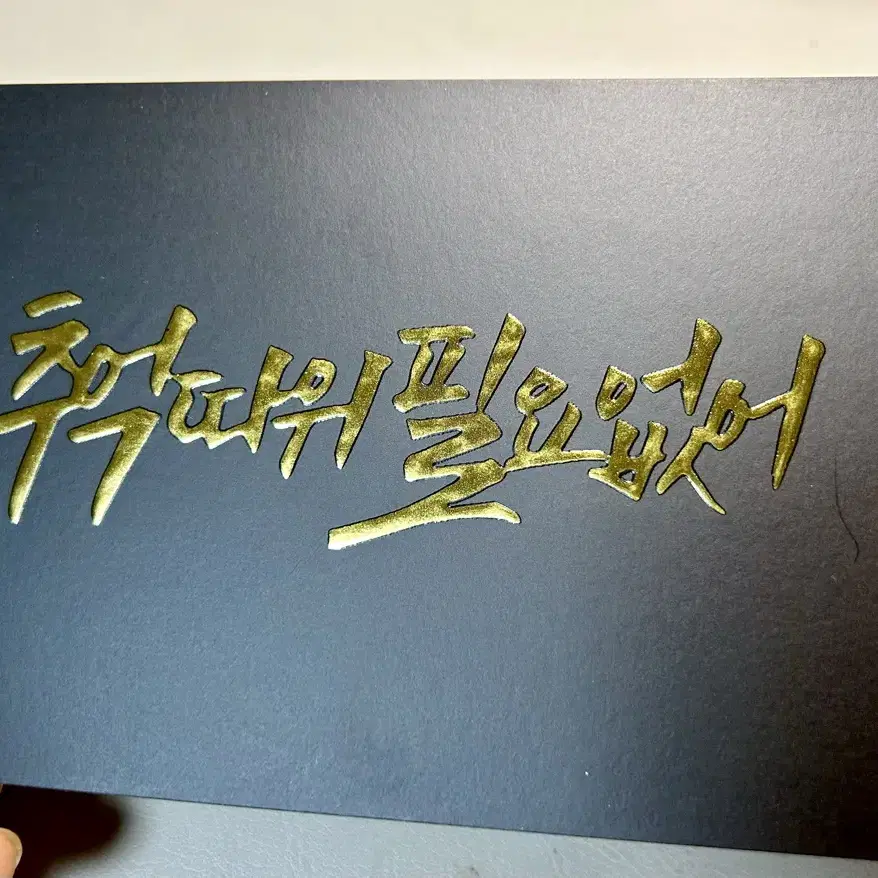 추억따위필요없어